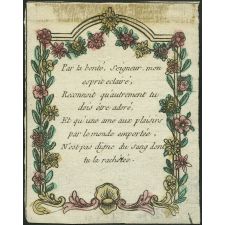 Par ta bonté, Seigneur, mon
esprit eclairé,
Reconnoit qu'autrement tu
dois être adoré,
Et qu'une ame aux plaisirs
par le monde emportée,
N'est pas digne du sang dont
tu la rachetée.